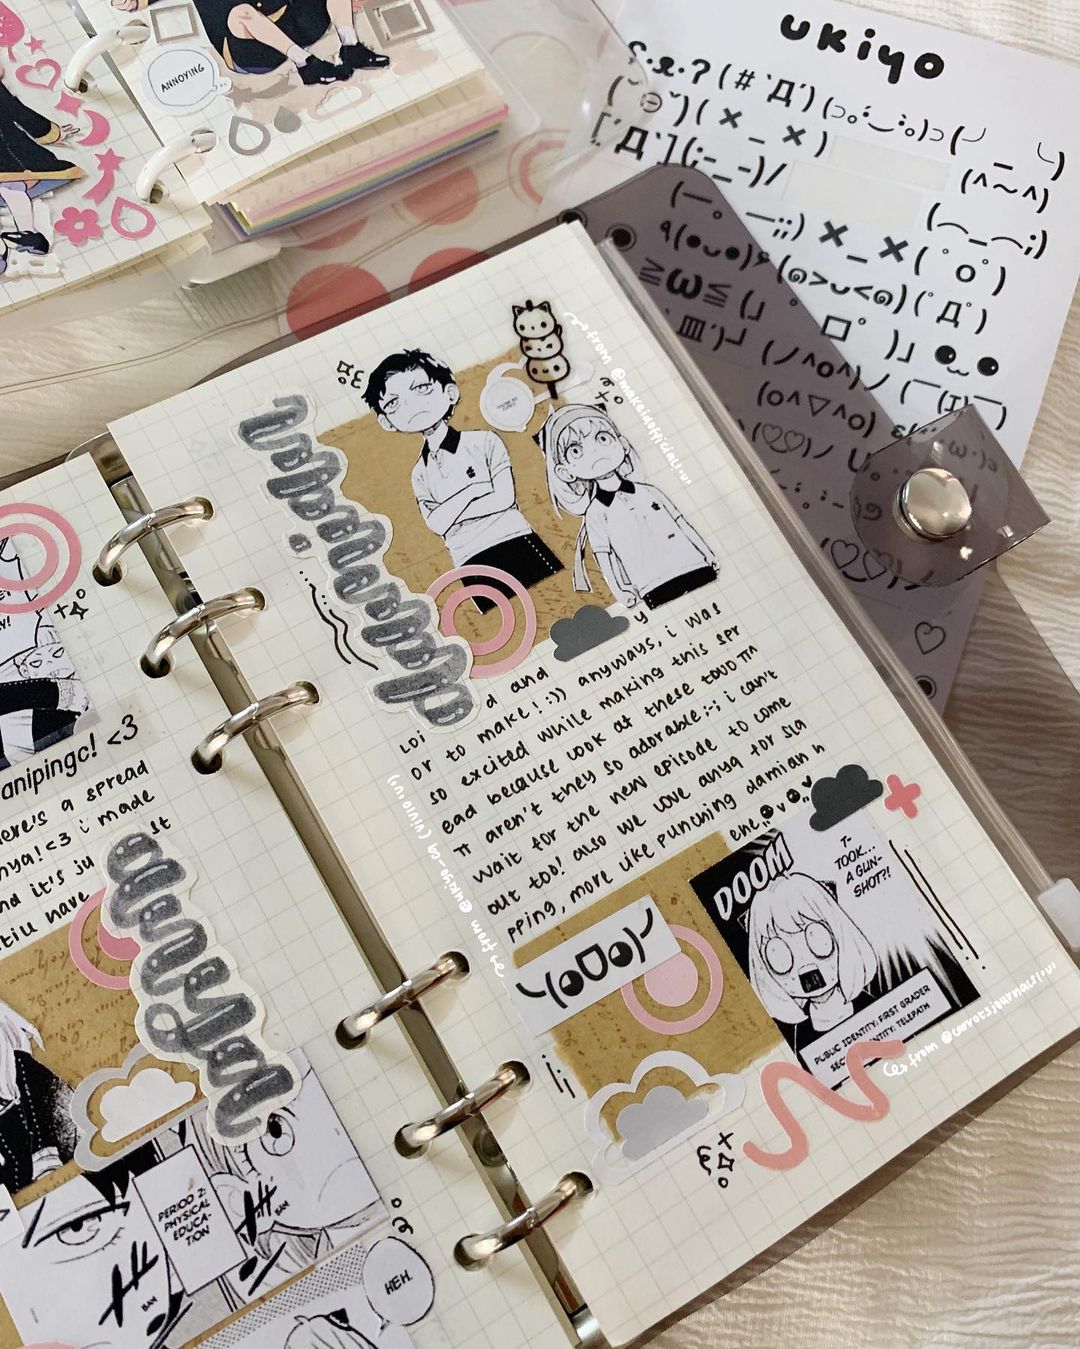 ANNOYING
ukiyo
(#`Д´)
( × _ × )
(^~^)
[`Д´]
(;-_-)/
× _ ×
(°o°)
(๑>ᴗ<๑)
(°Д°)
≧ω≦
(ノ^o^)ノ
(o^▽^o)
from @makeidofficial!
y
d and
Loi
or to make! :)) anyways, i was
so excited while making this spr
ead because look at these two ππ
π aren't they so adorable ;-; i can't
wait for the new episode to come
out too! also we love anya for sla
pping, more like punching damian n
ehe
from @ukiyo-ca
DOOM
T-
TOOK...
A GUN-
SHOT?!
PUBLIC IDENTITY: FIRST GRADER
IDENTITY: TELEPATH
from @carrotsjournals
anipingc! <3
here's a spread
nya! <3 i made
st
nd it's ju
till have
PERIOD 2:
PHYSICAL
EDUCA-
TION
BAM
BAM
HEH.